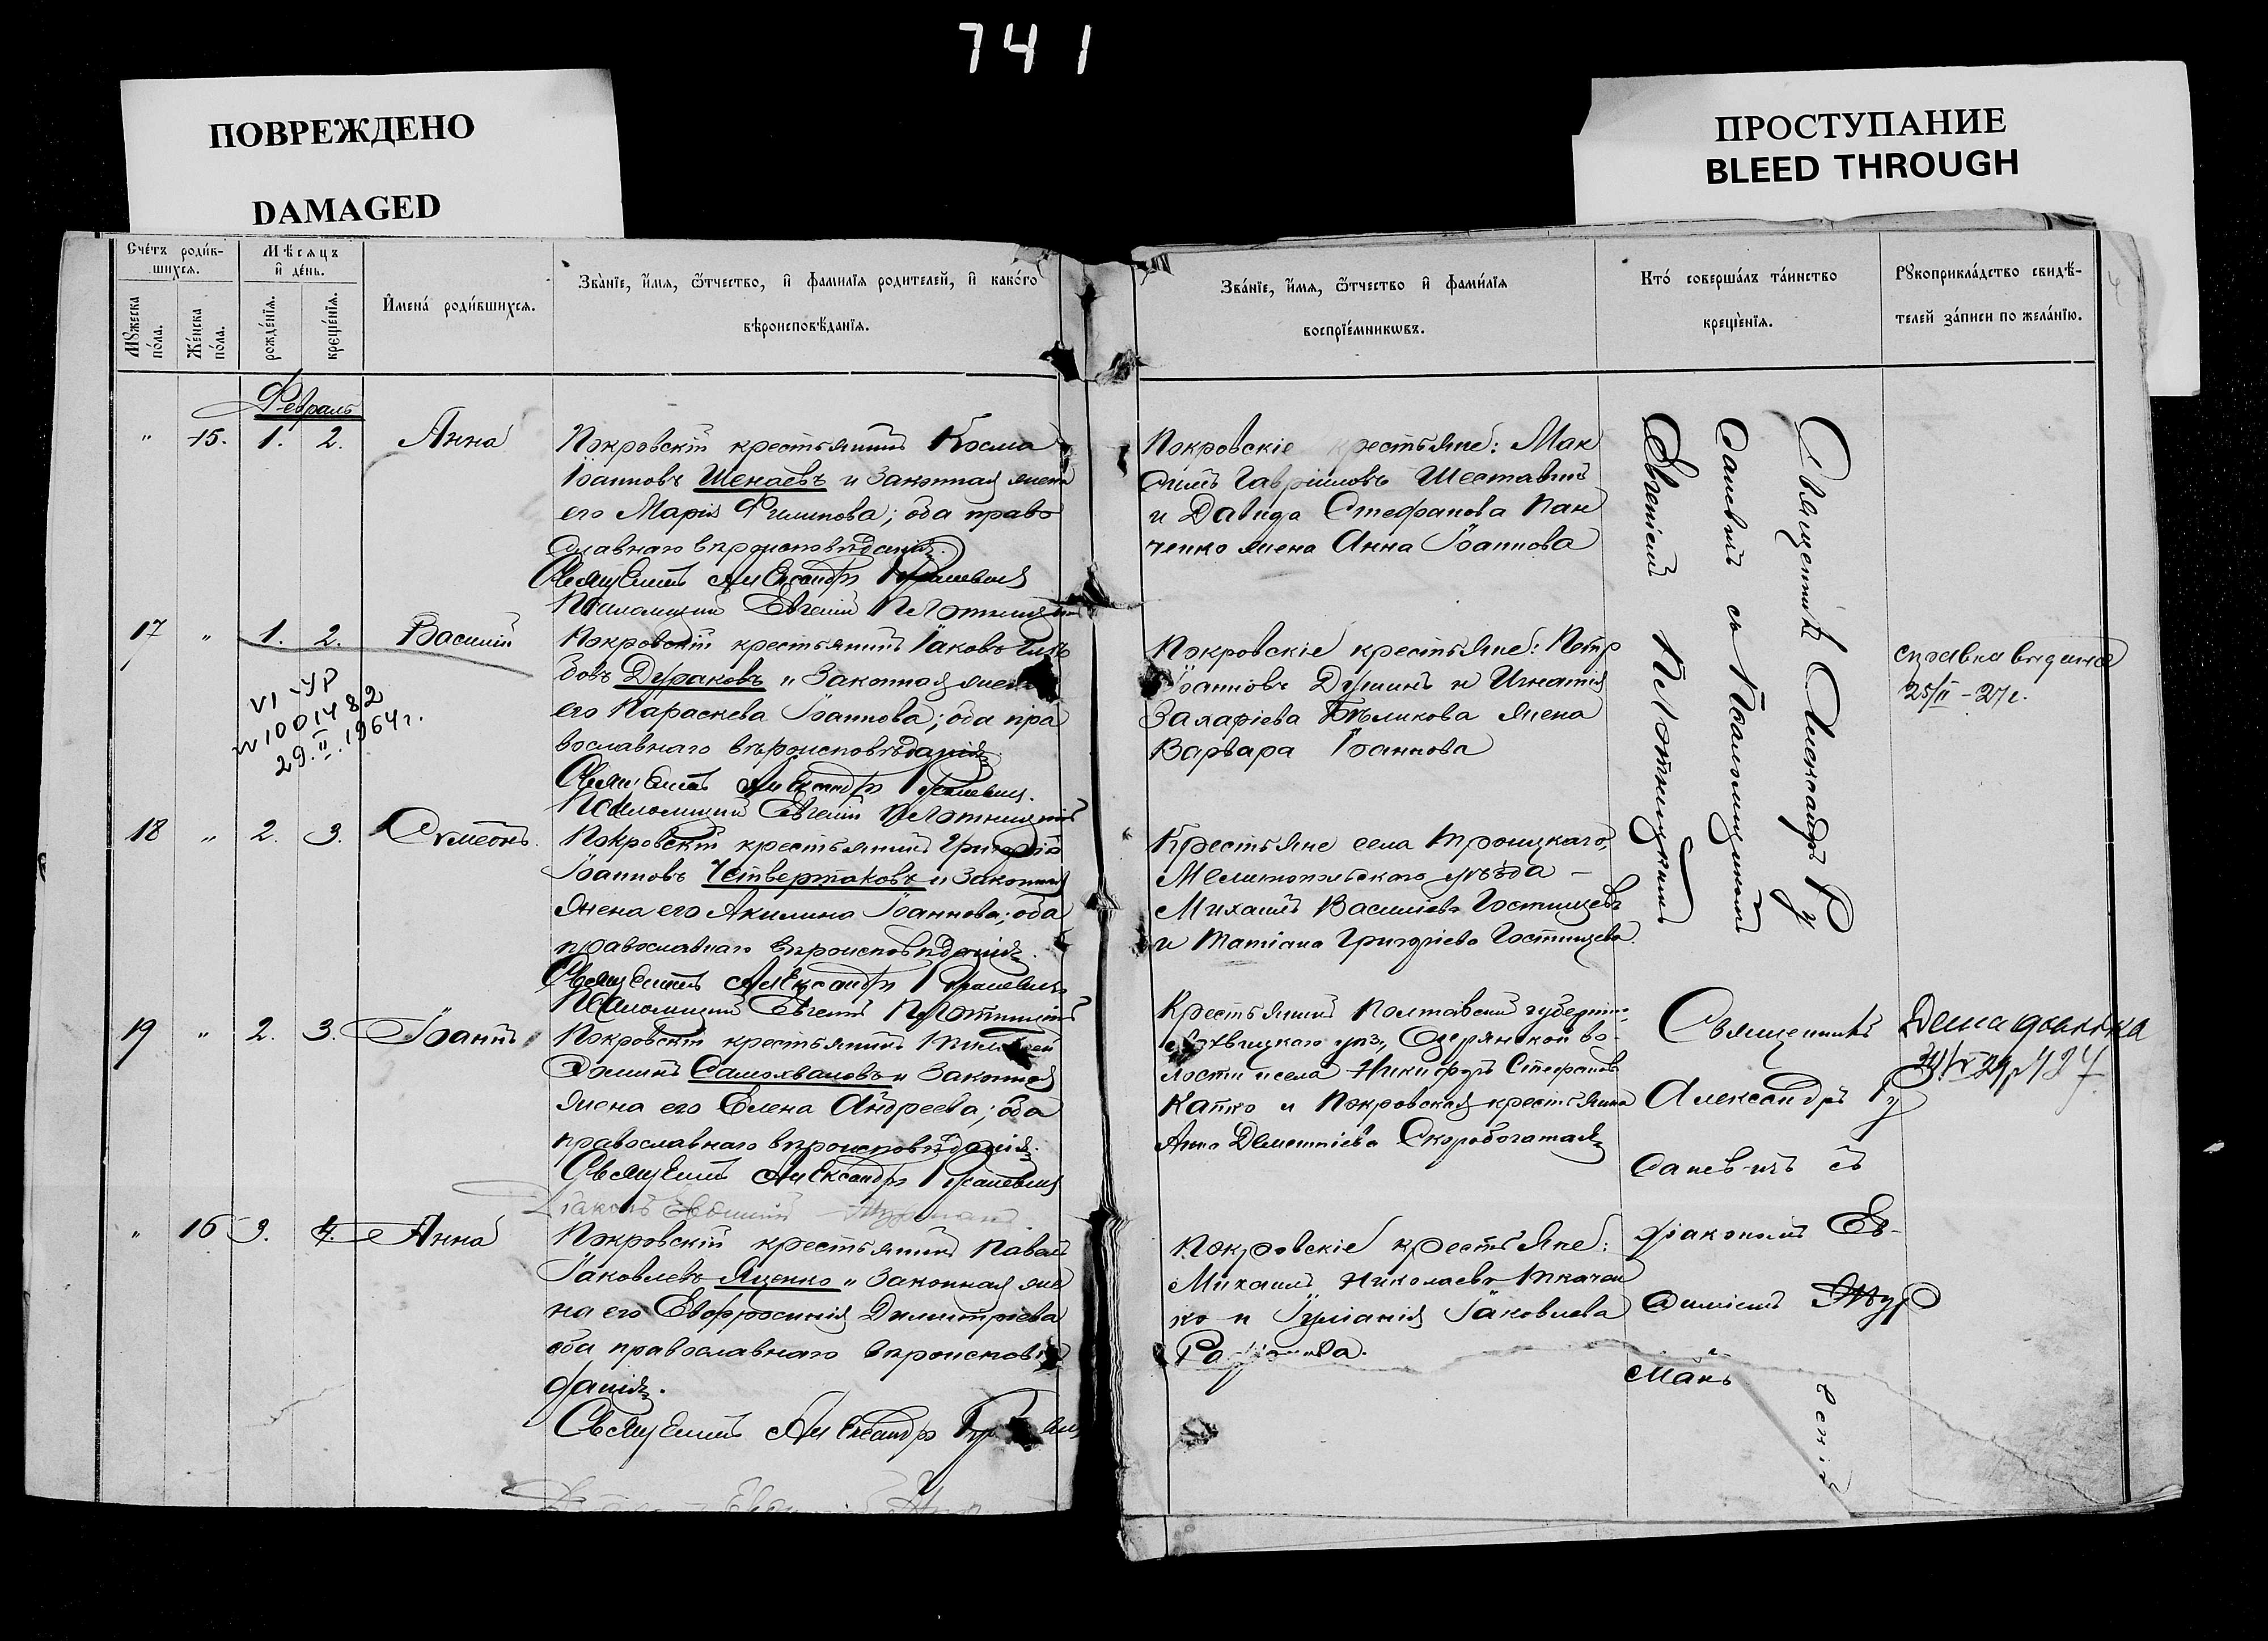 741
ПОВРЕЖДЕНО
DAMAGED
ПРОСТУПАНИЕ
BLEED THROUGH
Счéтъ роди́в-
шихсѧ.
Мꙋжеска
по́ла.
Же́нска
по́ла.
Мѣсѧцъ
и҆ де́нь.
рожде́нїѧ.
креще́нїѧ.
И҆мена́ роди́вшихсѧ.
Зва́нїе, и҆́мѧ, ѻ҆́тчество, и҆ фамилїѧ родителей, и҆ како́гѡ
вѣроисповѣ́данїѧ.
Зва́нїе, и҆́мѧ, ѻ҆́тчество и҆ фами́лїѧ
воспрїе́мникѡвъ.
Кто́ соверша́лъ та́инство
креще́нїѧ.
Рꙋкоприкла́дство свидѣ́-
телей за́писи по жела́нїю.
Февраль
" 15. 1. 2. Анна
Покровскій крестьянинъ Косма
Іоанновъ Шенаевъ и законная жена
его Марія Филипова; оба право
славнаго вѣроисповѣданія.
Священникъ Александръ
Псаломщикъ Евгеній
Покровскіе крестьяне: Мак
симъ Гавріиловъ
и Давида Стефанова Пан
ченко жена Анна Іоаннова
17 " 1. 2. Василій
VI-УР
№ 1001482
29.II.1964г.
Покровскій крестьянинъ Іаковъ Глѣ
бовъ Дураковъ и законная жена
его Параскева Іоаннова; оба пра
вославнаго вѣроисповѣданія.
Священникъ Александръ
Псаломщикъ Евгеній
Покровскіе крестьяне: Петръ
Іоанновъ Душинъ и Игнатія
Захаріева Бѣликова жена
Варвара Іоаннова
справка выдана
25/II-27г.
18 " 2. 3. Сѵмеонъ.
Покровскій крестьянинъ Григорій
Іоанновъ Четвертаковъ и законная
жена его Акилина Іоаннова; оба
православнаго вѣроисповѣданія.
Священникъ Александръ
Псаломщикъ Евгеній
Крестьяне села Троицкаго,
Мелитопольскаго уѣзда –
Михаилъ Василіевъ Гостищевъ
и Татіана Григоріева Гостищева.
Священникъ Александръ Ру
саневичъ съ Псаломщикомъ
Евгеніемъ
19 " 2. 3. Іоаннъ
Покровскій крестьянинъ
Самохваловъ и законная
жена его Елена Андреева; оба
православнаго вѣроисповѣданія.
Священникъ Александръ
Діаконъ
Крестьянинъ Полтавской губерніи,
Лохвицкаго уѣз., Озерянской во-
лости и села Никифоръ Стефановъ
и Покровская крестьянка
Анна Дементіева Скоробогатая
Священникъ
Александръ Ру
саневичъ съ
діакономъ Ев-
ѳиміемъ Жур
манъ
" 16 3. 4. Анна
Покровскій крестьянинъ Павелъ
Іаковлевъ Яценко и законная же
на его Евфросинія Димитріева
оба православнаго вѣроисповѣ
данія.
Священникъ Александръ
Покровскіе крестьяне:
Михаилъ Николаевъ Ткачен
ко и Іуліанія Іаковлева